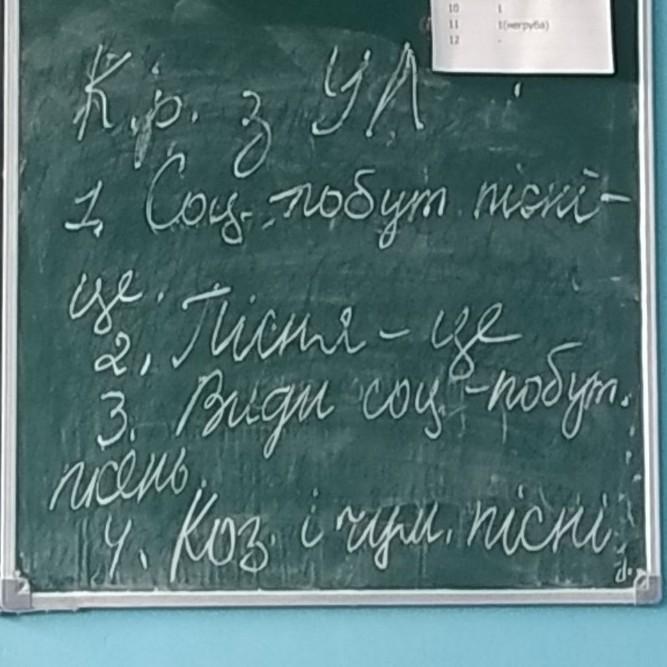 10 1
11 1(негруба)
12 -
К.р. з УЛ
1. Соц-побут пісні-
це.
2. Пісня - це
3. Види соц-побут.
пісень.
4. Коз. і чум. пісні